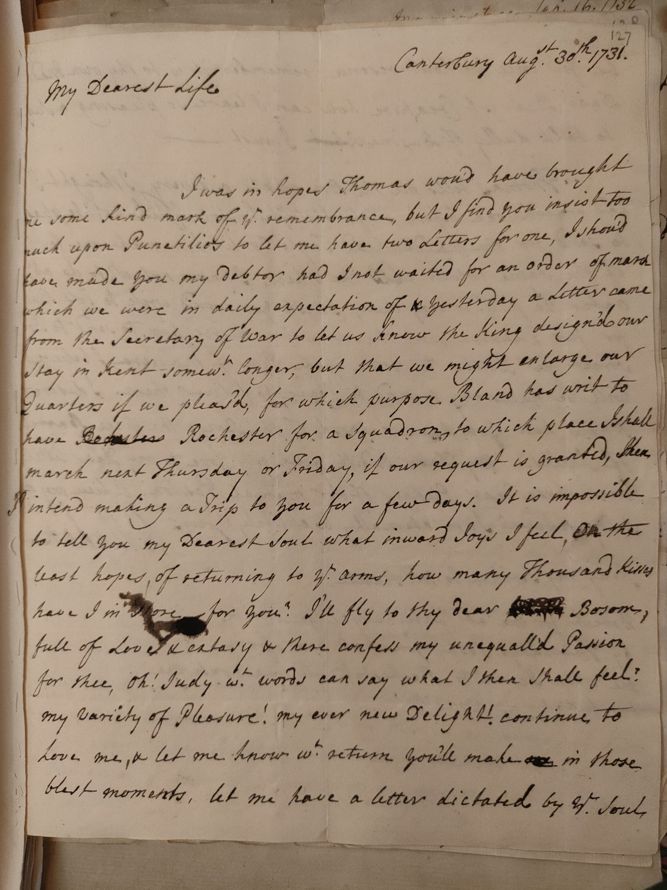 Jan. 16. 1732
127
Canterbury Augst. 30th. 1731.
My Dearest Life
I was in hopes Thomas wou'd have brought
me some kind mark of yr. remembrance, but I find you insist too
much upon Punctilios to let me have two Letters for one, I shou'd
have made you my debtor had I not waited for an order of march
which we were in daily expectation of & yesterday a Letter came
from the Secretary of War to let us know the King design'd our
stay in Kent somewt. longer, but that we might enlarge our
Quarters if we pleas'd, for which purpose Bland has writ to
have Rochester for a Squadron, to which place I shall
march next Thursday or Friday, if our request is granted, then
I intend making a Trip to you for a few days. It is impossible
to tell you my Dearest Soul what inward Joys I feel, On the
least hopes, of returning to yr. arms, how many Thousand Kisses
have I in Store for you? I'll fly to thy dear Bosom,
full of Love & extasy & there confess my unequall'd Passion
for thee, Oh! Judy wt. words can say what I then shall feel?
my variety of Pleasure! my ever new Delight! continue to
Love me, & let me know wt. return you'll make in those
blest moments, let me have a letter dictated by yr. Soul